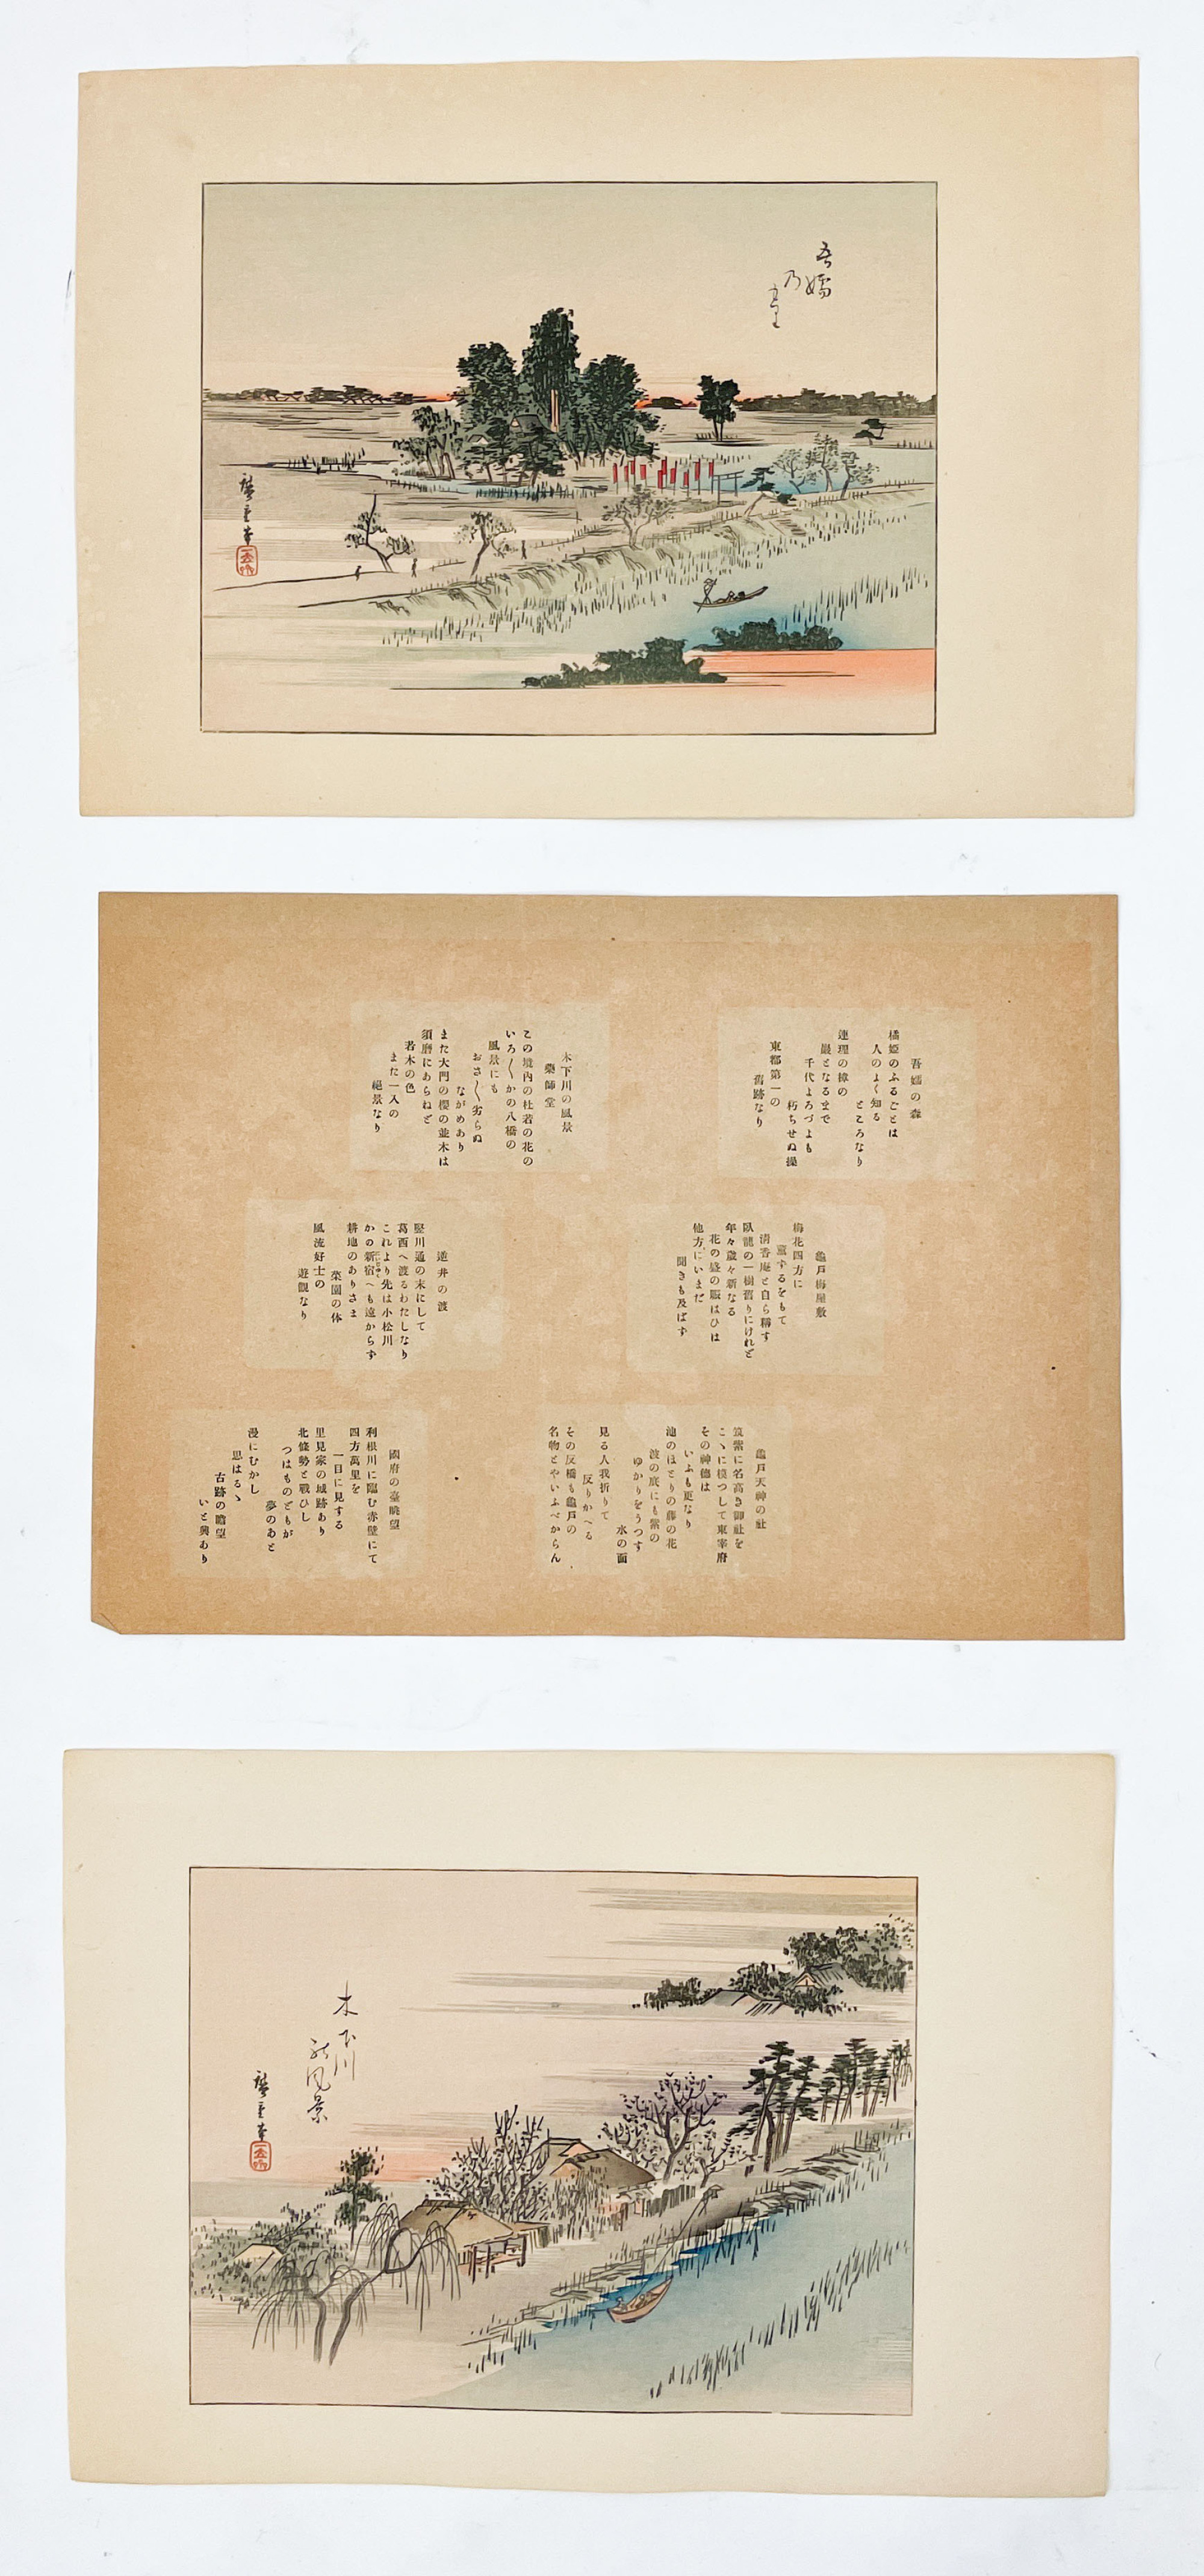 吾嬬
乃
森
廣重筆
吾嬬の森
橘姫のふるごとは
人のよく知る
ところなり
連理の樟の
巌となるまで
千代よろづよも
朽ちせぬ操
東都第一の
舊跡なり
木下川の風景
藥師堂
この境内の杜若の花の
いろ〳〵かの八橋の
風景にも
おさ〳〵劣らぬ
ながめあり
また大門の櫻の並木は
須磨にあらねど
若木の色
また一入の
絕景なり
龜戸梅屋敷
梅花四方に
薫ずるをもて
清香庵と自ら稱す
臥龍の一樹舊りにけれど
年々歳々新なる
花の盛の賑はひは
他方にいまだ
聞きも及ばず
逆井の渡
竪川通の末にして
葛西へ渡るわたしなり
これより先は小松川
かの新宿へも遠からず
耕地のありさま
菜園の体
風流好士の
遊觀なり
龜戸天神の社
筑紫に名高き御社を
こゝに模つして東宰府
その神德は
いふも更なり
池のほとりの藤の花
波の底にも紫の
ゆかりをうつす
水の面
見る人我折りて
反りかへる
その反橋も龜戸の
名物とやいふべからん
國府の臺眺望
利根川に臨む赤壁にて
四方萬里を
一目に見する
里見家の城跡あり
北條勢と戰ひし
つはものどもが
夢のあと
漫にむかし
思はるゝ
古跡の瞻望
いと興あり
木下川
の風景
廣重筆